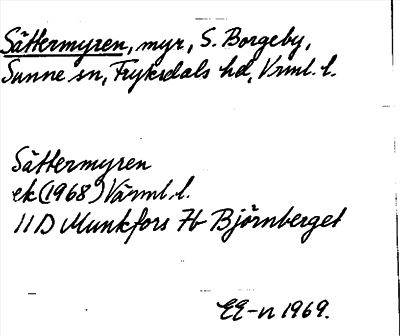 Sättermyren, myr, S. Borgeby,
Sunne sn, Fryksdals hd, Vrml. l.
Sättermyren
ek (1968) Värml. l.
11D Munkfors 7b Björnberget
EE-n 1969.